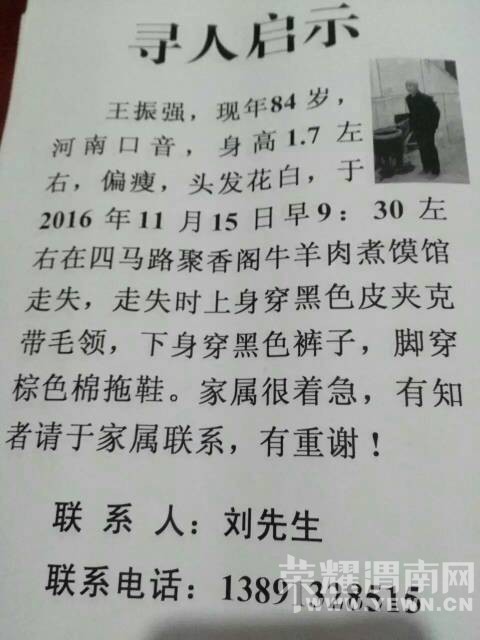 寻人启示
王振强，现年84岁，
河南口音，身高1.7左
右，偏瘦，头发花白，于
2016年11月15日早9：30左
右在四马路聚香阁牛羊肉煮馍馆
走失，走失时上身穿黑色皮夹克
带毛领，下身穿黑色裤子，脚穿
棕色棉拖鞋。家属很着急，有知
者请于家属联系，有重谢！
联 系 人：刘先生
联系电话：13891328515
荣耀渭南网
WWW.YEWN.CN